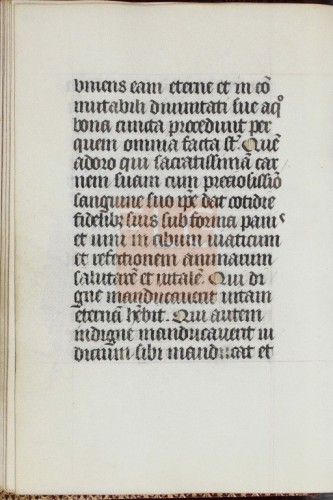 vniens eam eterne et in cō
mutabili diuinitati sue a qͦ
bona cuncta procedunt per
quem omnia facta st̄. Quē
adoro qui sacratissimā car
nem suam cum preciosissīo
sanguine suo ip̄e dat cotidie
fidelibꝰ suis sub forma panis
et uini in cibum uiaticum
et refectionem animarum
salutarē et uitalē. Qui di
gne manducauerit uitam
eternā hēbit. Qui autem
indigne manducauerit iu
dicium sibi manducat et